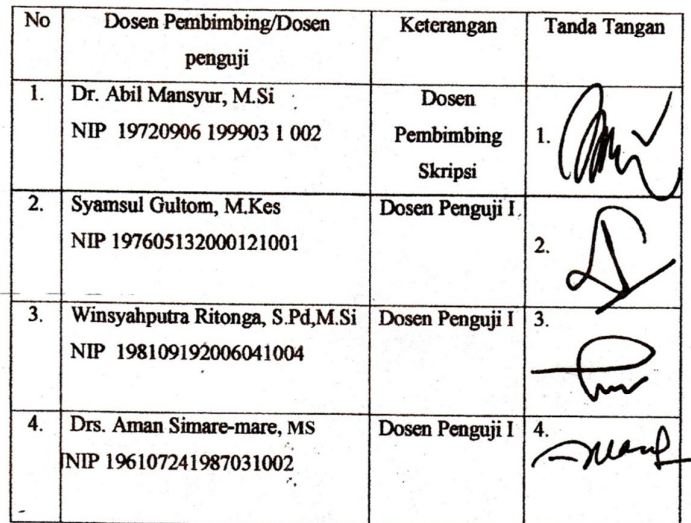 No Dosen Pembimbing/Dosen penguji Keterangan Tanda Tangan
1. Dr. Abil Mansyur, M.Si
NIP 19720906 199903 1 002
Dosen
Pembimbing
Skripsi
1.
2. Syamsul Gultom, M.Kes
NIP 197605132000121001
Dosen Penguji I.
2.
3. Winsyahputra Ritonga, S.Pd,M.Si
NIP 198109192006041004
Dosen Penguji I
3.
4. Drs. Aman Simare-mare, MS
NIP 196107241987031002
Dosen Penguji I
4.